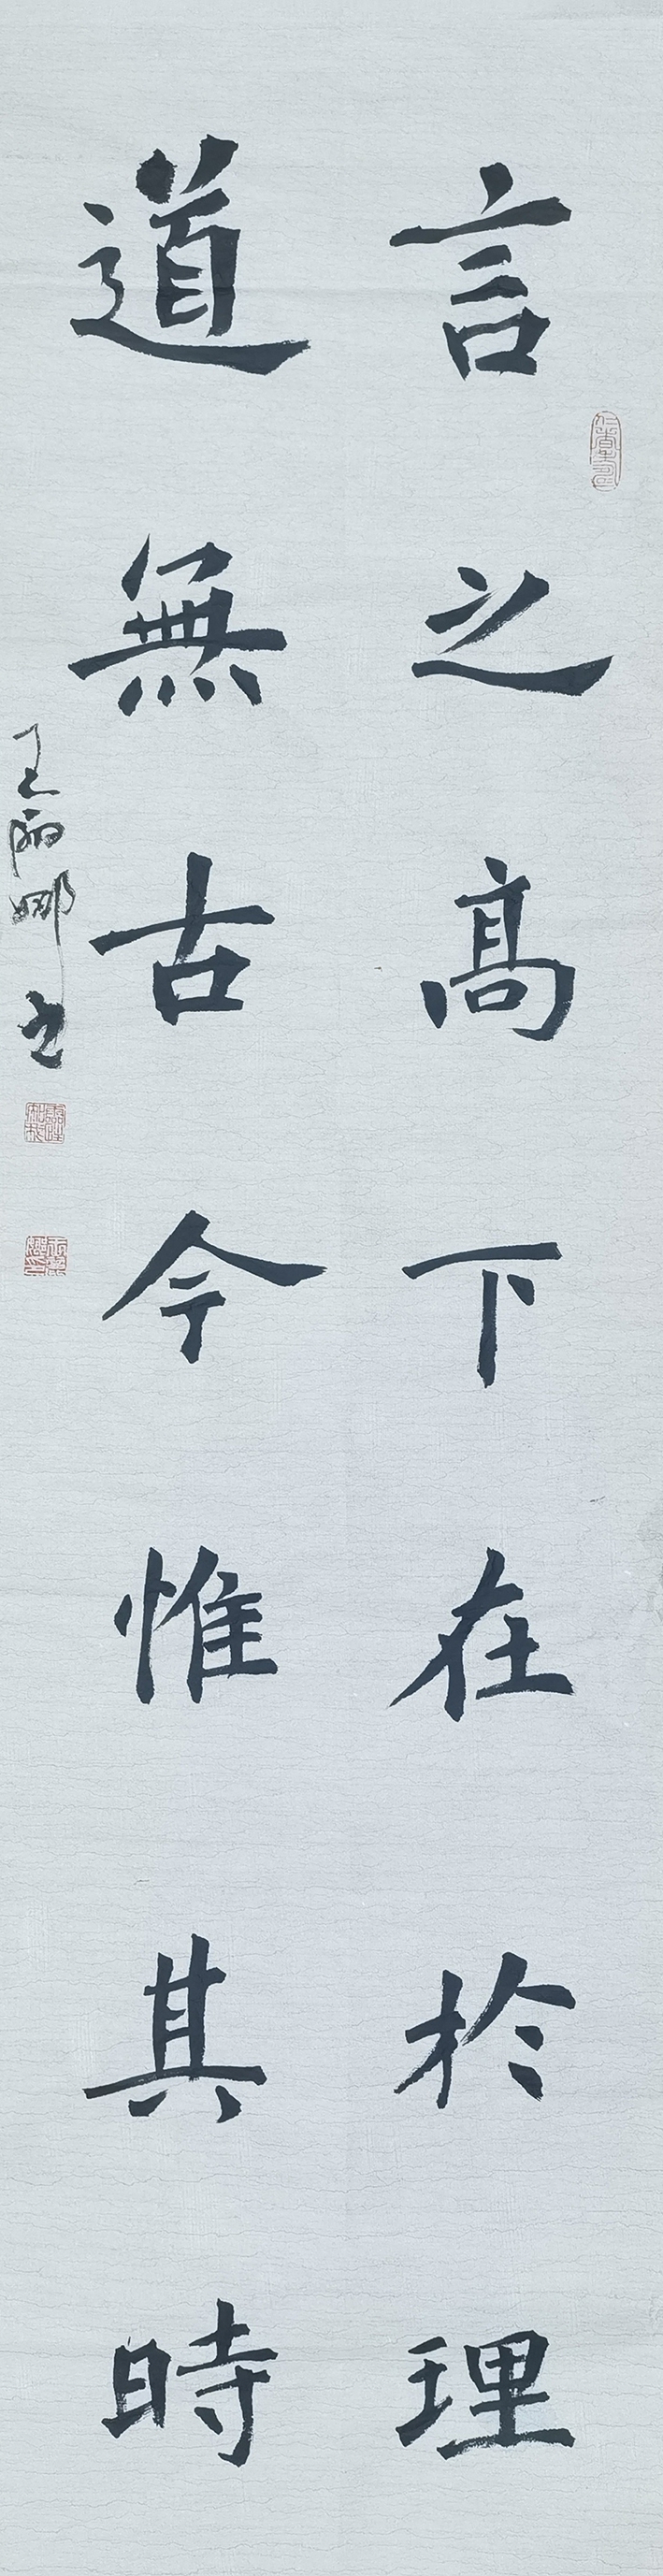 言之高下在於理
道無古今惟其時
王丽娜书